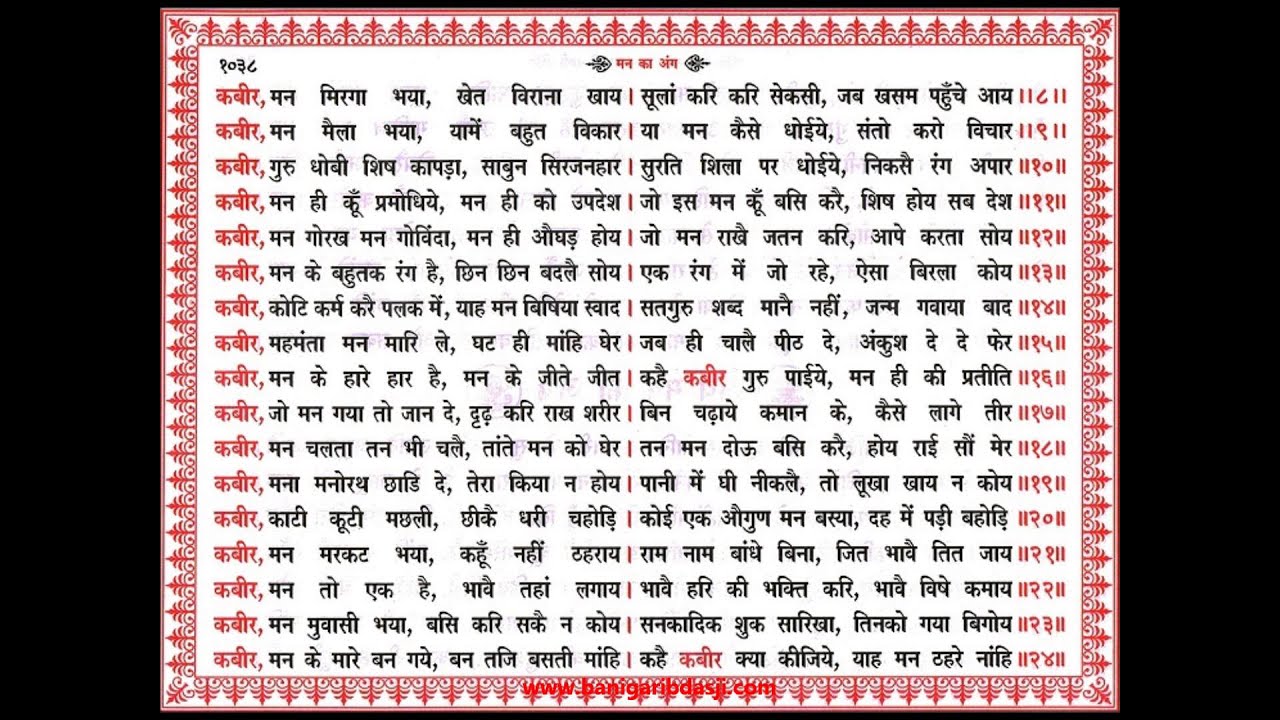 १०३८
मन का अंग
कबीर, मन मिरगा भया, खेत विराना खाय। सूलां करि करि सेकसी, जब खसम पहुँचे आय।।८।।
कबीर, मन मैला भया, यामें बहुत विकार। या मन कैसे धोईये, संतो करो विचार।।९।।
कबीर, गुरु धोबी शिष कापड़ा, साबुन सिरजनहार। सुरति शिला पर धोईये, निकसै रंग अपार॥१०॥
कबीर, मन ही कूँ प्रमोधिये, मन ही को उपदेश। जो इस मन कूँ बसि करै, शिष होय सब देश॥११॥
कबीर, मन गोरख मन गोविंदा, मन ही औघड़ होय। जो मन राखै जतन करि, आपे करता सोय॥१२॥
कबीर, मन के बहुतक रंग है, छिन छिन बदलै सोय। एक रंग में जो रहे, ऐसा बिरला कोय॥१३॥
कबीर, कोटि कर्म करै पलक में, याह मन बिषिया स्वाद। सतगुरु शब्द मानै नहीं, जन्म गवाया बाद॥१४॥
कबीर, महमंता मन मारि ले, घट ही मांहि घेर। जब ही चालै पीठ दे, अंकुश दे दे फेर॥१५॥
कबीर, मन के हारे हार है, मन के जीते जीत। कहै कबीर गुरु पाईये, मन ही की प्रतीति॥१६॥
कबीर, जो मन गया तो जान दे, दृढ़ करि राख शरीर। बिन चढ़ाये कमान के, कैसे लागे तीर॥१७॥
कबीर, मन चलता तन भी चलै, तांते मन को घेर। तन मन दोऊ बसि करै, होय राई सौं मेर॥१८॥
कबीर, मना मनोरथ छाडि दे, तेरा किया न होय। पानी में घी नीकलै, तो लूखा खाय न कोय॥१९॥
कबीर, काटी कूटी मछली, छीकै धरी चहोड़ि। कोई एक औगुण मन बस्या, दह में पड़ी बहोड़ि॥२०॥
कबीर, मन मरकट भया, कहूँ नहीं ठहराय। राम नाम बांधे बिना, जित भावै तित जाय॥२१॥
कबीर, मन तो एक है, भावै तहां लगाय। भावै हरि की भक्ति करि, भावै विषे कमाय॥२२॥
कबीर, मन मुवासी भया, बसि करि सकै न कोय। सनकादिक शुक सारिखा, तिनको गया बिगोय॥२३॥
कबीर, मन के मारे बन गये, बन तजि बसती मांहि। कहै कबीर क्या कीजिये, याह मन ठहरे नांहि॥२४॥
www.banigaribdasji.com